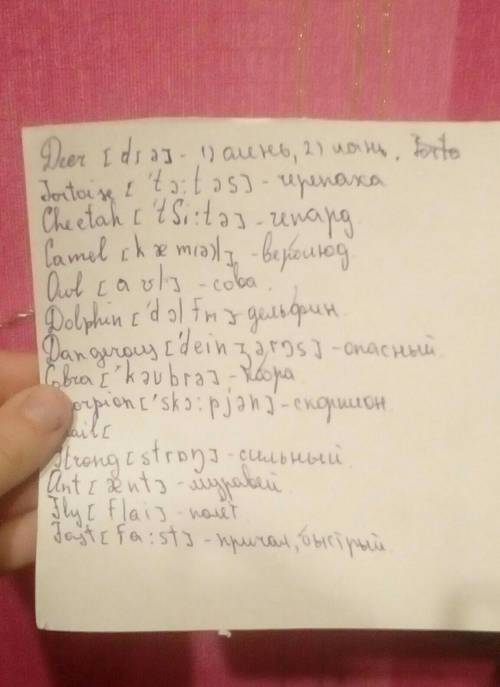 Deer [dɪə] - 1) олень, 2) лань.
Tortoise ['tɔ:təs] - черепаха
Cheetah ['tʃi:tə] - гепард
Camel [kæm(ə)l] - верблюд
Owl [aʊl] - сова
Dolphin ['dɔlfɪn] - дельфин
Dangerous ['deinʒərəs] - опасный
Cobra ['kəubrə] - кобра
orpion ['skɔ:pjən] - скорпион
ail [
Strong [strɒŋ] - сильный
Ant [ænt] - муравей
Fly [flai] - полёт
Fast [fa:st] - причал, быстрый